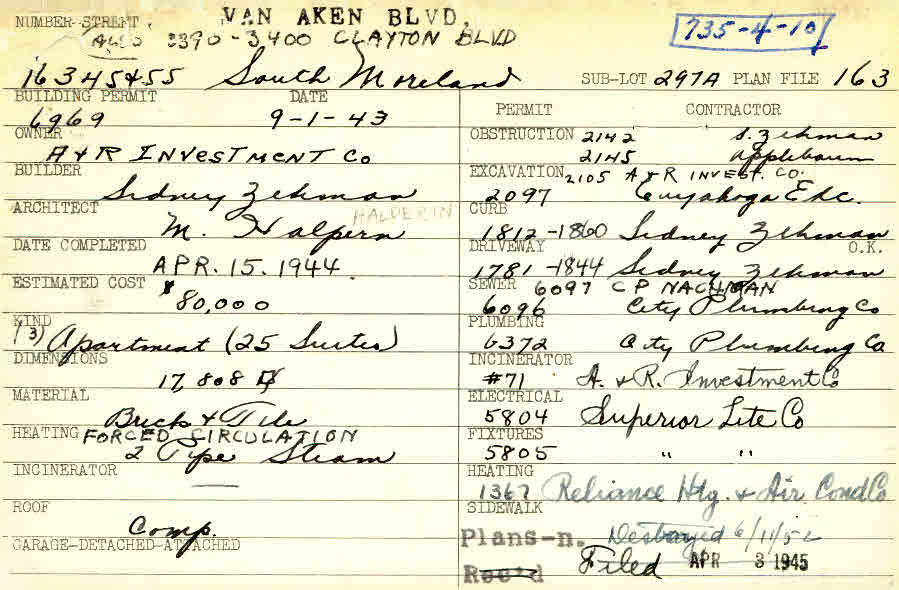 NUMBER-STREET. VAN AKEN BLVD.
ALSO 3390-3400 CLAYTON BLVD
735-4-10
16345&55 South Moreland
SUB-LOT 297A PLAN FILE 163
BUILDING PERMIT DATE
6969 9-1-43
OWNER
A & R INVESTMENT CO
BUILDER
Sidney Zehman
ARCHITECT
HALDERIN
M. Halpern
DATE COMPLETED
APR. 15. 1944.
ESTIMATED COST
$80,000
KIND
(3) Apartment (25 Suites)
DIMENSIONS
17,808
MATERIAL
Brick & Tile
HEATING FORCED CIRCULATION
2 Pipe Steam
INCINERATOR
—
ROOF
Comp.
GARAGE-DETACHED-ATTACHED
PERMIT CONTRACTOR
OBSTRUCTION 2142 S. Zehman
2145 Applebaum
EXCAVATION 2105 A & R INVEST. CO.
2097 Cuyahoga Exc.
CURB
1812-1860 Sidney Zehman
DRIVEWAY O.K.
1781-1844 Sidney Zehman
SEWER 6097 C P NACHMAN
6096 City Plumbing Co
PLUMBING
6372 City Plumbing Co
INCINERATOR
#71 A. & R. Investment Co
ELECTRICAL
5804 Superior Lite Co
FIXTURES
5805 " "
HEATING
1367 Reliance Htg. & Air Cond Co
SIDEWALK
Plans-n. Destroyed 6/11/52
Rec'd Filed APR 3 1945